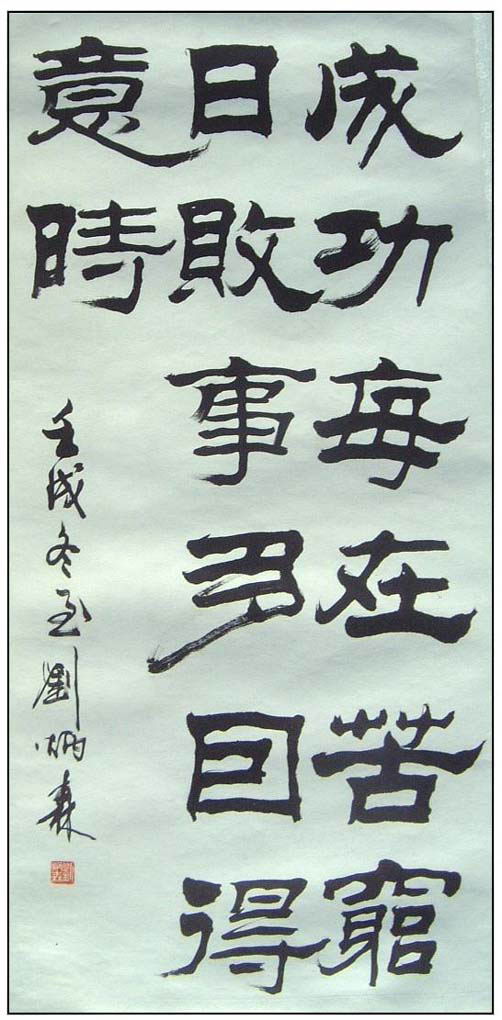 成功每在苦窮
日敗事多因得
意時
壬戌冬至劉炳森